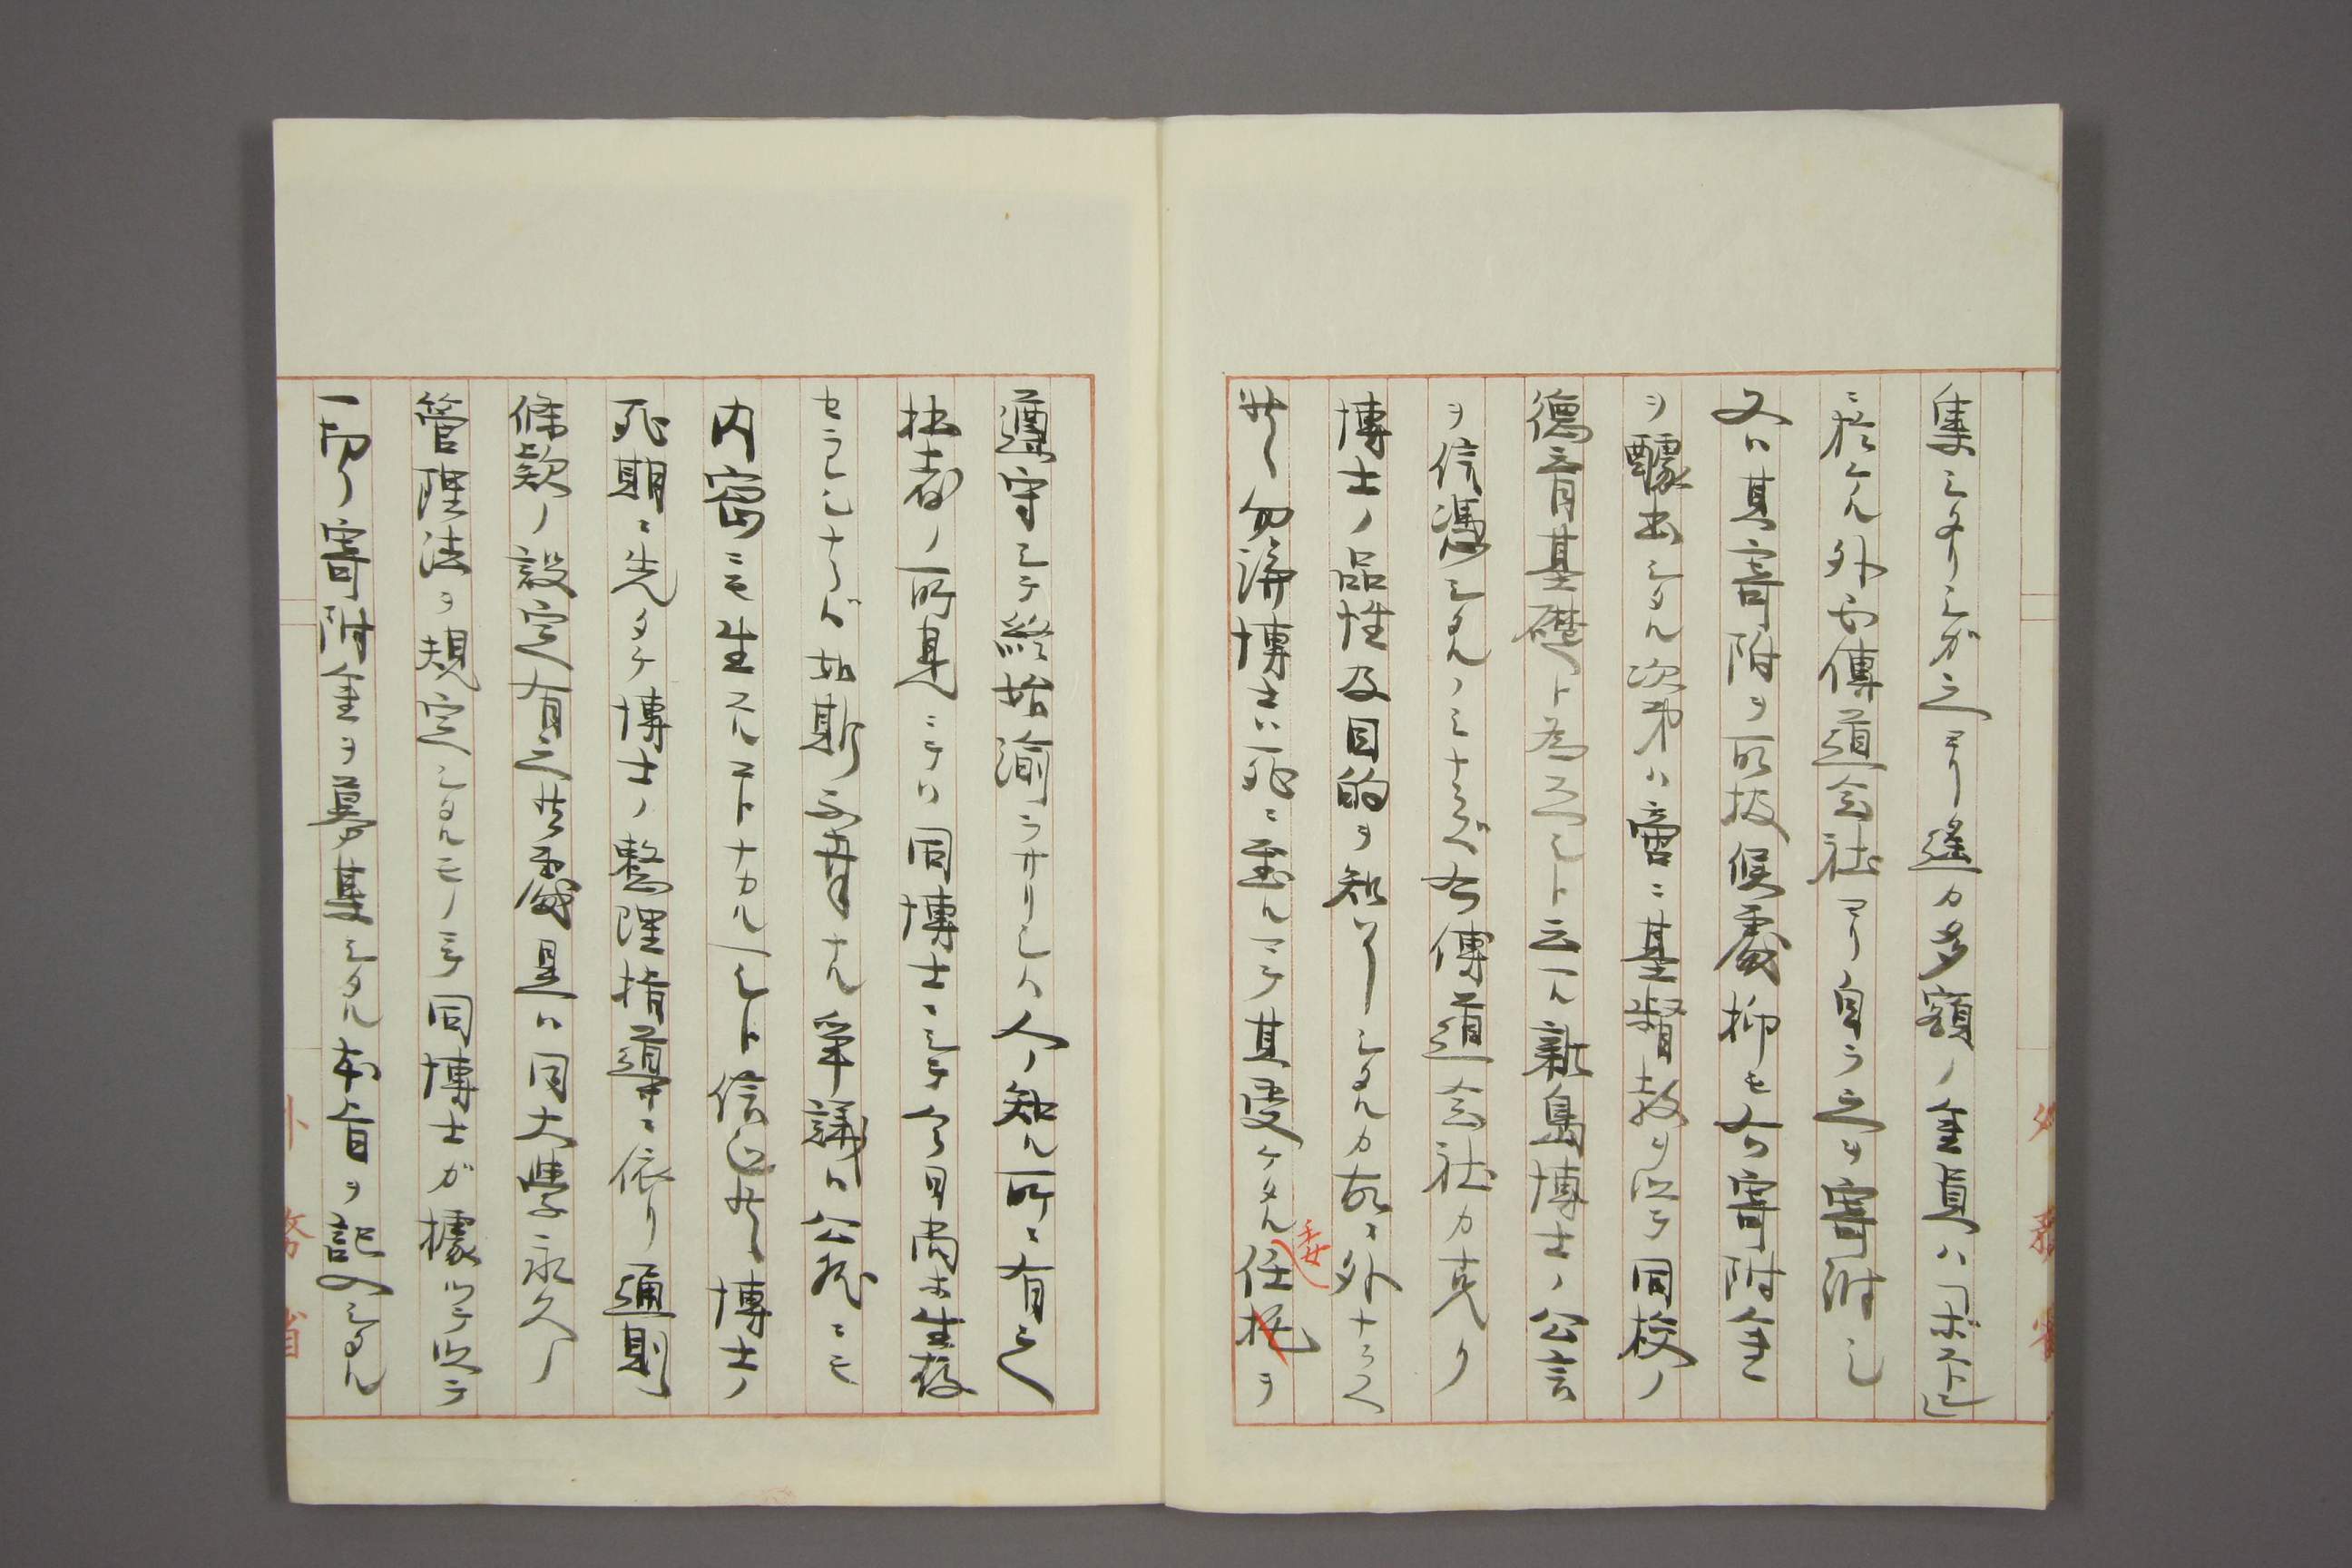 集シタリシガ之ヨリ遙カ多額ノ金員ハ「ボストン」
ニ於ケル外國傳道会社ヨリ自ラ之ヲ寄附シ
又ハ其寄附ヲ所扱候處抑モ右寄附金
ヲ醵出シタル次第ハ啻ニ基督教ヲ以テ同校ノ
德育基礎ト為スヘシト云ヘル新島博士ノ公言
ヲ信憑シタルノミナラズ右傳道会社カ克ク
博士ノ品性及目的ヲ知リシタルカ故ニ外ナラス
候勿論博士ハ死ニ至ルマテ其受ケタル任托ヲ
委
遵守シテ終始渝ラサリシハ人ノ知ル所ニ有之
拙者ノ所見ニテハ同博士ニシテ今日尚ホ生存
セラレシナラバ如斯不幸ナル爭議ハ公然ニモ
内密ニモ生スルコトナカルヘシト信シ候博士ノ
死期ニ先タチ博士ノ整理指導ニ依リ通則
條款ノ設定有之候處是ハ同大學永久ノ
管理法ヲ規定シタルモノニテ同博士ガ據テ以テ
一切ノ寄附金ヲ募集シタル本旨ヲ記シタル
外務省
外務省